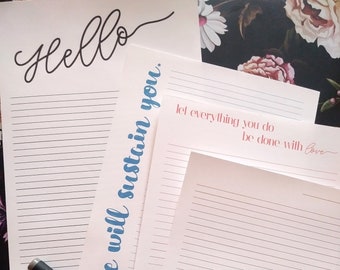 Hello
will sustain you.
let everything you do
be done with love